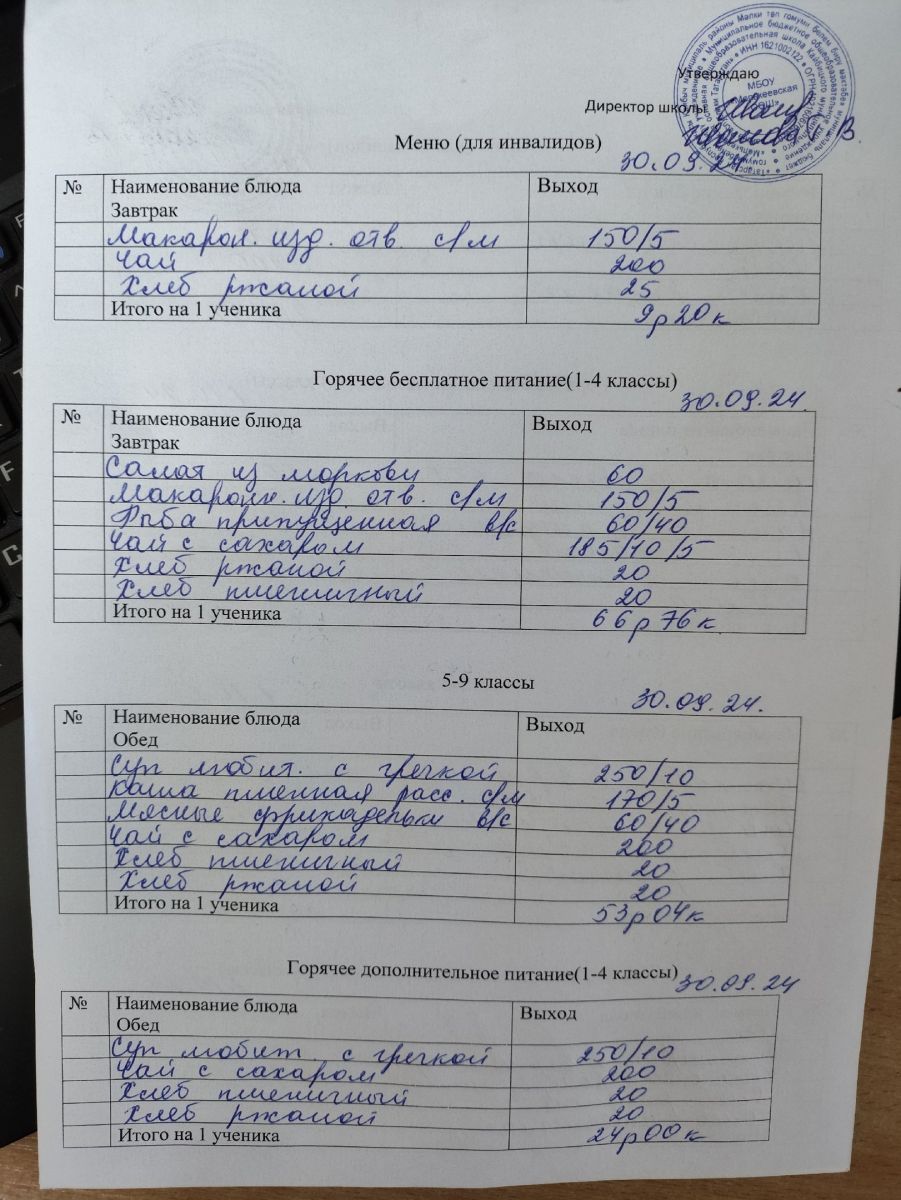 Утверждаю
Директор школы
МБОУ
Меню (для инвалидов)
30.09.24
№ Наименование блюда Выход
Завтрак
Макарон. изд. отв с/м 150/5
Чай 200
Хлеб ржаной 25
Итого на 1 ученика 9р20к
Горячее бесплатное питание(1-4 классы)
30.09.24.
№ Наименование блюда Выход
Завтрак
Салат из моркови 60
Макаронн. изд. отв. с/м 150/5
Рыба припущенная в/с 60/40
Чай с сахаром 185/10/5
Хлеб ржаной 20
Хлеб пшеничный 20
Итого на 1 ученика 66р76к
5-9 классы
30.09.24.
№ Наименование блюда Выход
Обед
Суп любит. с гречкой 250/10
Каша пшенная расс. с/м 170/5
Мясные фрикадельки в/с 60/40
Чай с сахаром 200
Хлеб пшеничный 20
Хлеб ржаной 20
Итого на 1 ученика 53р04к
Горячее дополнительное питание(1-4 классы)
30.09.24
№ Наименование блюда Выход
Обед
Суп любит. с гречкой 250/10
Чай с сахаром 200
Хлеб пшеничный 20
Хлеб ржаной 20
Итого на 1 ученика 24р00к